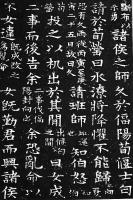 諸侯之師久於偪陽荀偃士匄
請於荀罃曰水潦將降懼不能歸
請班師知伯怒
投之以机出於其間曰女成
二事而後告余余恐亂命以
不女違女既勤君而興諸侯